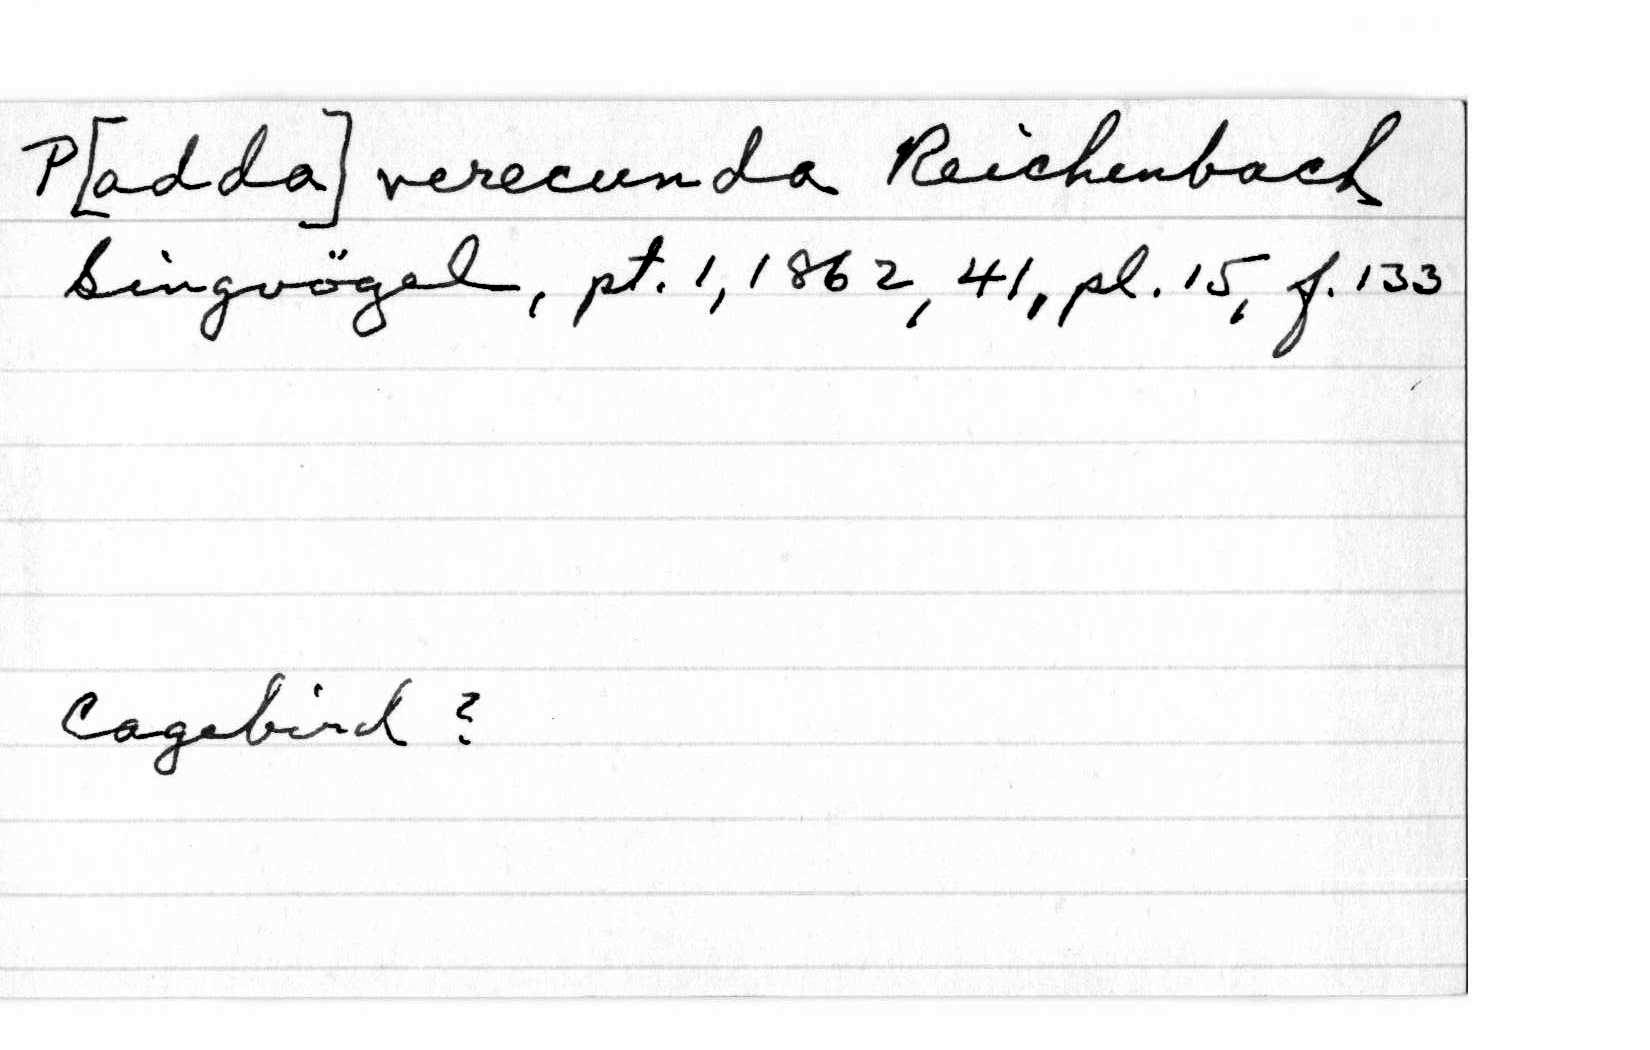 P[adda] verecunda Reichenbach
Singvögel, pt. 1, 1862, 41, pl. 15, f. 133
Cagebird ?